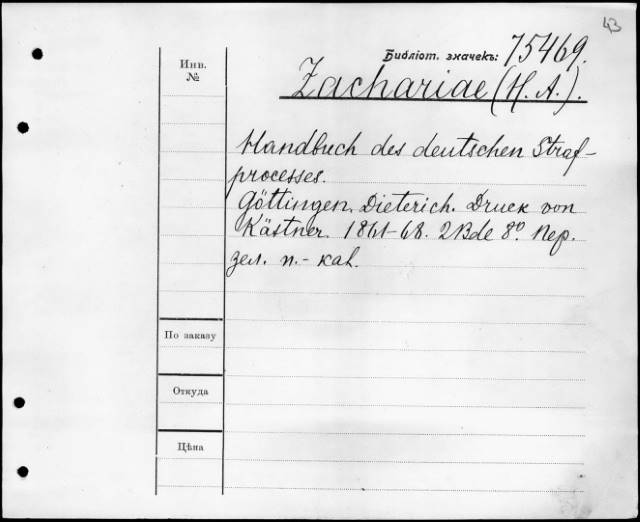 43
Библіот. значекъ: 75469.
Инв.
№
Zachariae (H. A.).
Handbuch des deutschen Straf-
processes.
Göttingen. Dieterich. Druck von
Kästner. 1861-68. 2 Bde 8º. Пер.
зел. п.- каl.
По заказу
Откуда
Цѣна